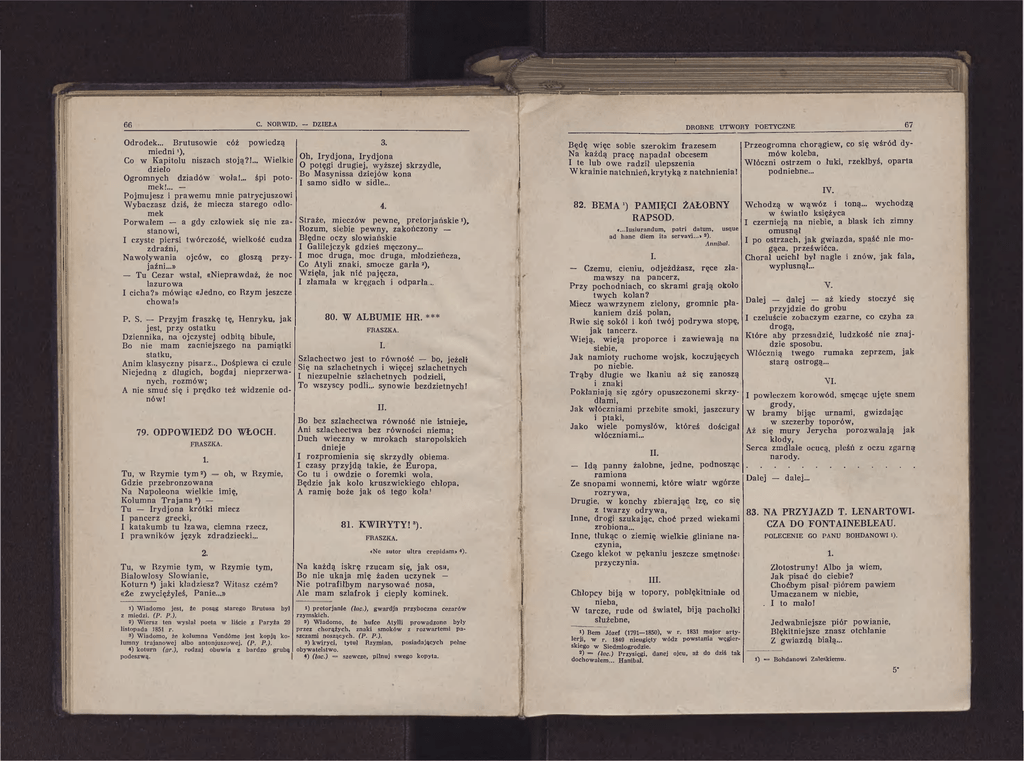 66
C. NORWID. — DZIEŁA
Odrodek... Brutusowie cóż powiedzą
miedni ¹),
Co w Kapitolu niszach stoją?!... Wielkie
dzieło
Ogromnych dziadów woła!... śpi poto-
mek!... —
Pojmujesz i prawemu mnie patrycjuszowi
Wybaczasz dziś, że miecza starego odło-
mek
Porwałem — a gdy człowiek się nie za-
stanowi,
I czyste piersi twórczość, wielkość cudza
zdraźni,
Nawoływania ojców, co głoszą przy-
jaźni...»
— Tu Cezar wstał, «Nieprawdaż, że noc
lazurowa
I cicha?» mówiąc «Jedno, co Rzym jeszcze
chowa!»
P. S. — Przyjm fraszkę tę, Henryku, jak
jest, przy ostatku
Dziennika, na ojczystej odbitą bibule,
Bo nie mam zacniejszego na pamiątki
statku,
Anim klasyczny pisarz... Dośpiewa ci czule
Niejedną z długich, bogdaj nieprzerwa-
nych, rozmów;
A nie smuć się i prędko też widzenie od-
nów!
79. ODPOWIEDŹ DO WŁOCH.
FRASZKA.
1.
Tu, w Rzymie tym ²) — oh, w Rzymie,
Gdzie przebronzowana
Na Napoleona wielkie imię,
Kolumna Trajana ³) —
Tu — Irydjona krótki miecz
I pancerz grecki,
I katakumb tu łzawa, ciemna rzecz,
I prawników język zdradziecki...
2.
Tu, w Rzymie tym, w Rzymie tym,
Białowłosy Słowianie,
Koturn ⁴) jaki kładziesz? Witasz czém?
«Że zwyciężyłeś, Panie...»
¹) Wiadomo jest, że posąg starego Brutusa był
z miedzi. (P. P.).
²) Wiersz ten wysłał poeta w liście z Paryża 20
listopada 1851 r.
³) Wiadomo, że kolumna Vendôme jest kopją ko-
lumny trajanowej albo antonjuszowej. (P. P.).
⁴) koturn (gr.), rodzaj obuwia z bardzo grubą
podeszwą.
3.
Oh, Irydjona, Irydjona
O potęgi drugiej, wyższej skrzydle,
Bo Masynissa dziejów kona
I samo sidło w sidle...
4.
Straże, mieczów pewne, pretorjańskie ¹),
Rozum, siebie pewny, zakończony —
Błędne oczy słowiańskie
I Galilejczyk gdzieś męczony...
I moc druga, moc druga, młodzieńcza,
Co Atyli znaki, smocze garła ²),
Wzięła, jak nić pajęcza,
I złamała w kręgach i odparła...
80. W ALBUMIE HR. ***
FRASZKA.
I.
Szlachectwo jest to równość — bo, jeżeli
Się na szlachetnych i więcej szlachetnych
I niezupełnie szlachetnych podzieli,
To wszyscy podli... synowie bezdzietnych!
II.
Bo bez szlachectwa równość nie istnieje,
Ani szlachectwa bez równości niema;
Duch wieczny w mrokach staropolskich
dnieje
I rozpromienia się skrzydły obiema.
I czasy przyjdą takie, że Europa,
Co tu i owdzie o foremki woła,
Będzie jak koło kruszwickiego chłopa,
A ramię boże jak oś tego koła!
81. KWIRYTY! ³).
FRASZKA.
«Ne sutor ultra crepidam» ⁴).
Na każdą iskrę rzucam się, jak osa,
Bo nie ukaja mię żaden uczynek —
Nie potrafiłbym narysować nosa,
Ale mam szlafrok i ciepły kominek.
¹) pretorjanie (łac.), gwardja przyboczna cezarów
rzymskich.
²) Wiadomo, że hufce Atylli prowadzone były
przez chorążych, znaki smoków z rozwartemi pa-
szczami noszących. (P. P.).
³) kwiryci, tytuł Rzymian, posiadających pełne
obywatelstwo.
⁴) (łac.) — szewcze, pilnuj swego kopyta.
DROBNE UTWORY POETYCZNE
67
Będę więc sobie szerokim frazesem
Na każdą pracę napadał obcesem
I te lub owe radził ulepszenia
W krainie natchnień, krytyką z natchnienia!
82. BEMA ¹) PAMIĘCI ŻAŁOBNY
RAPSOD.
«...Iusiurandum, patri datum, usque
ad hanc diem ita servavi...» ²).
Annibal.
I.
— Czemu, cieniu, odjeżdżasz, ręce zła-
mawszy na pancerz,
Przy pochodniach, co skrami grają około
twych kolan?
Miecz wawrzynem zielony, gromnic pła-
kaniem dziś polan,
Rwie się sokół i koń twój podrywa stopę,
jak tancerz.
Wieją, wieją proporce i zawiewają na
siebie,
Jak namioty ruchome wojsk, koczujących
po niebie.
Trąby długie we łkaniu aż się zanoszą
i znaki
Pokłaniają się zgóry opuszczonemi skrzy-
dłami,
Jak włóczniami przebite smoki, jaszczury
i ptaki,
Jako wiele pomysłów, któreś dościgał
włóczniami...
II.
— Idą panny żałobne, jedne, podnosząc
ramiona
Ze snopami wonnemi, które wiatr wgórze
rozrywa,
Drugie, w konchy zbierając łzę, co się
z twarzy odrywa,
Inne, drogi szukając, choć przed wiekami
zrobiona...
Inne, tłukąc o ziemię wielkie gliniane na-
czynia,
Czego klekot w pękaniu jeszcze smętności
przyczynia.
III.
Chłopcy biją w topory, pobłękitniałe od
nieba,
W tarcze, rude od świateł, biją pachołki
służebne,
¹) Bem Józef (1791—1850), w r. 1831 major arty-
lerji, w r. 1849 nieugięty wódz powstania węgier-
skiego w Siedmiogrodzie.
²) — (łac.) Przysięgi, danej ojcu, aż do dziś tak
dochowałem... Hanibal.
Przeogromna chorągiew, co się wśród dy-
mów koleba,
Włóczni ostrzem o łuki, rzekłbyś, oparta
podniebne...
IV.
Wchodzą w wąwóz i toną... wychodzą
w światło księżyca
I czernieją na niebie, a blask ich zimny
omusnął
I po ostrzach, jak gwiazda, spaść nie mo-
gąca, prześwieca.
Chorał ucichł był nagle i znów, jak fala,
wyplusnął...
V.
Dalej — dalej — aż kiedy stoczyć się
przyjdzie do grobu
I czeluście zobaczym czarne, co czyha za
drogą,
Które aby przesadzić, ludzkość nie znaj-
dzie sposobu,
Włócznią twego rumaka zeprzem, jak
starą ostrogą...
VI.
I powleczem korowód, smęcąc ujęte snem
grody,
W bramy bijąc urnami, gwizdając
w szczerby toporów,
Aż się mury Jerycha porozwalają jak
kłody,
Serca zmdlałe ocucą, pleśń z oczu zgarną
narody.
. . . . . . . . . . . . . . .
Dalej — dalej...
83. NA PRZYJAZD T. LENARTOWI-
CZA DO FONTAINEBLEAU.
POLECENIE GO PANU BOHDANOWI ¹).
1.
Złotostruny! Albo ja wiem,
Jak pisać do ciebie?
Choćbym pisał piórem pawiem
Umaczanem w niebie,
I to mało!
Jedwabniejsze piór powianie,
Błękitniejsze znasz otchłanie
Z gwiazdą białą...
¹) — Bohdanowi Zaleskiemu.
5*